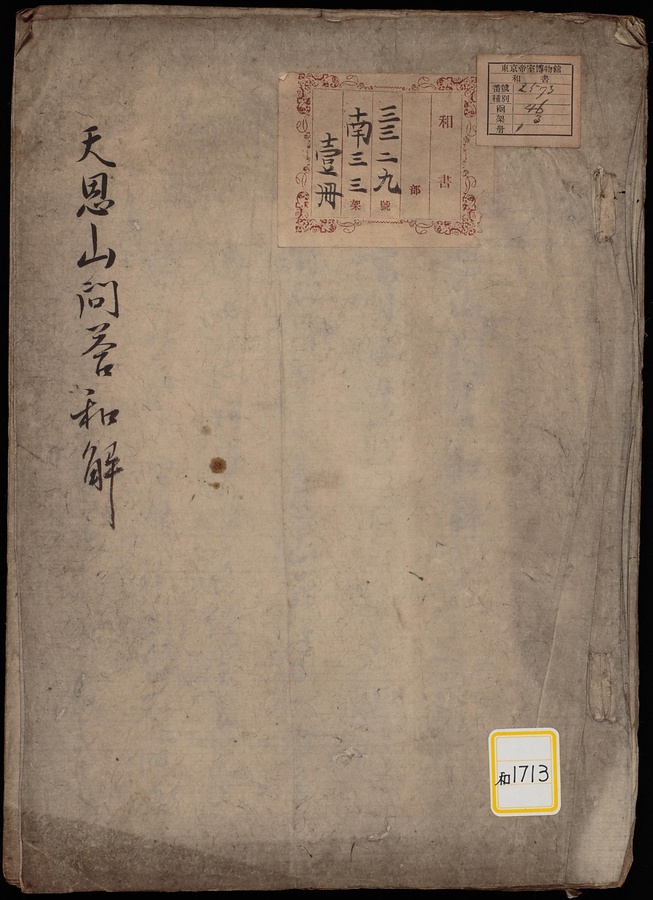 東京帝室博物館
和書
番號 2573
種別
函 46
架 3
冊 1
和書
部
三三二九號
南三三架
壹冊
天恩山問答和解
和1713